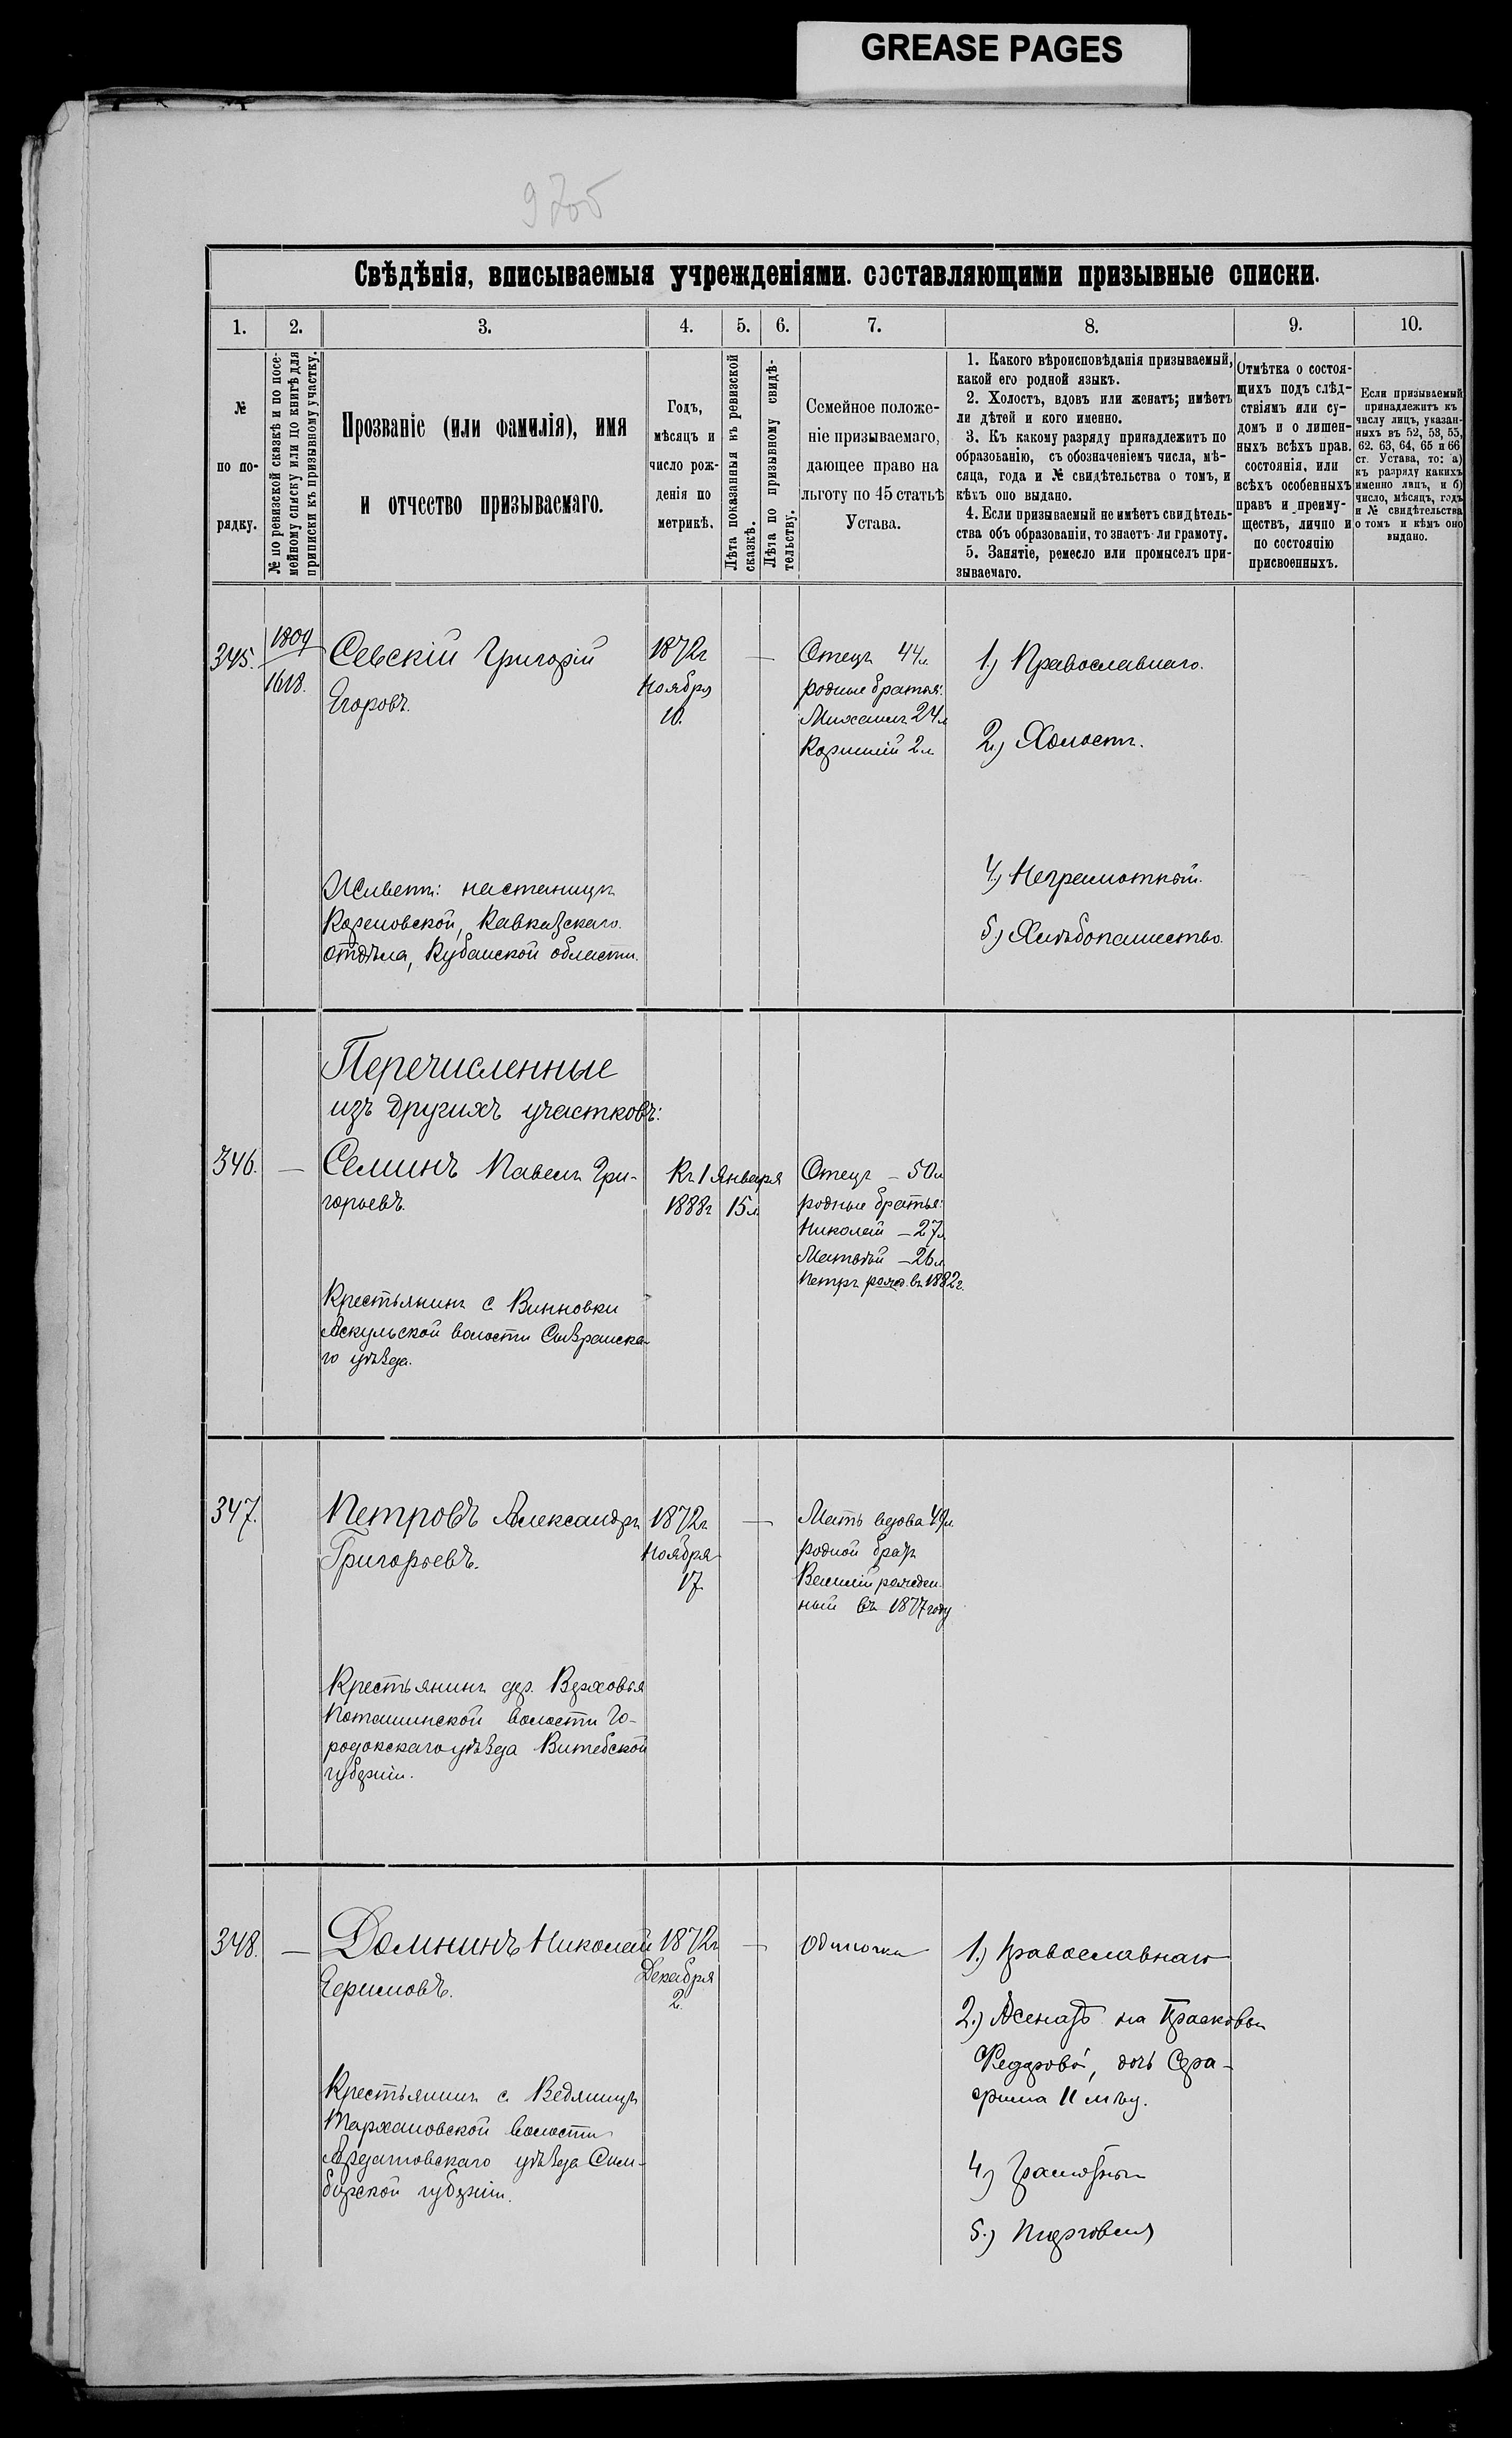 GREASE PAGES
Свѣдѣнія, вписываемыя учрежденіями. составляющими призывные списки.
1. 2. 3. 4. 5. 6. 7. 8. 9. 10.
№
по по-
рядку.
№ по ревизской сказкѣ и по посе-
мейному списку или по книгѣ для
приписки къ призывному участку.
Прозваніе (или фамилія), имя
и отчество призываемаго.
Годъ,
мѣсяцъ и
число рож-
денія по
метрикѣ.
Лѣта показанныя къ ревизской
сказкѣ.
Лѣта по призывному свидѣ-
тельству.
Семейное положе-
ніе призываемаго,
дающее право на
льготу по 45 статьѣ
Устава.
1. Какого вѣроисповѣданія призываемый,
какой его родной языкъ.
2. Холостъ, вдовъ или женатъ; имѣетъ
ли дѣтей и кого именно.
3. Къ какому разряду принадлежитъ по
образованію, съ обозначеніемъ числа, мѣ-
сяца, года и № свидѣтельства о томъ, и
кѣмъ оно выдано.
4. Если призываемый не имѣетъ свидѣтель-
ства объ образованіи, то знаетъ ли грамоту.
5. Занятіе, ремесло или промыселъ при-
зываемаго.
Отмѣтка о состоя-
щихъ подъ слѣд-
ствіямъ или су-
домъ и о лишен-
ныхъ всѣхъ прав.
состоянія, или
всѣхъ особенныхъ
правъ и преиму-
ществъ, лично и
по состоянію
присвоенныхъ.
Если призываемый
принадлежитъ къ
числу лицъ, указан-
ныхъ въ 52, 53, 55,
62. 63, 64, 65 и 66
ст. Устава, то: а)
къ разряду какихъ
именно лицъ, и б)
число, мѣсяцъ, годъ
и № свидѣтельства
о томъ и кѣмъ оно
выдано.
345.
1809
1618.
Севскій Григорій
Егоровъ.
1872г
Ноября
10.
—
Отецъ 44л.
родные братья:
Михаилъ 24л
Корнилій 2л
1.) Православнаго.
2.) Холостъ.
4.) Неграмотный.
5.) Хлѣбопашество.
Живетъ: на станицѣ
Кореновской, Кавказскаго
отдѣла, Кубанской области.
Перечисленные
изъ другихъ участковъ:
346. —
Семинъ Павелъ Гри-
горьевъ.
Къ 1 Января
1888г 15л
Отецъ — 50л
родные братья:
Николай — 27л.
Матвѣй — 26л
Петръ рожд. въ 1882г.
Крестьянинъ с Винновки
Аскульской волости Сызранска-
го уѣзда.
347.
Петровъ Александръ
Григорьевъ.
1872г
Ноября
17
—
Мать вдова 49л.
родной братъ
Василій рожден-
ный въ 1877 году
Крестьянинъ дер. Верховья
Поташинской волости Го-
родокскаго уѣзда Витебской
губерніи.
348. —
Домнинъ Николай
1872г
Декабря
2.
—
Одиночка
1.) Православнаго
2.) Женатъ на Прасковьи
Федоровой, дочь Сера-
фима
4.) Грамотный
5.)
Крестьянинъ с.
Тархановской волости
Ардатовскаго уѣзда Сим-
бирской губерніи.